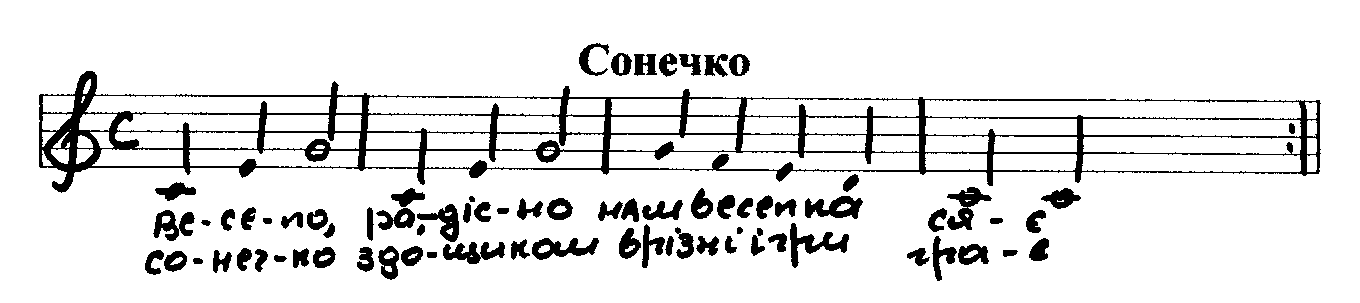 Сонечко
Ве-се-ло, ра-діс-но нам веселка ся-є
со-неч-ко здо-щиком врізні ігри гра-є